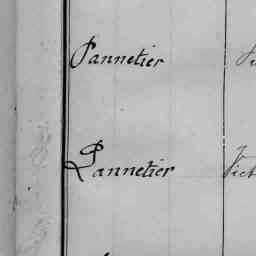 Pannetier
Pannetier Vict